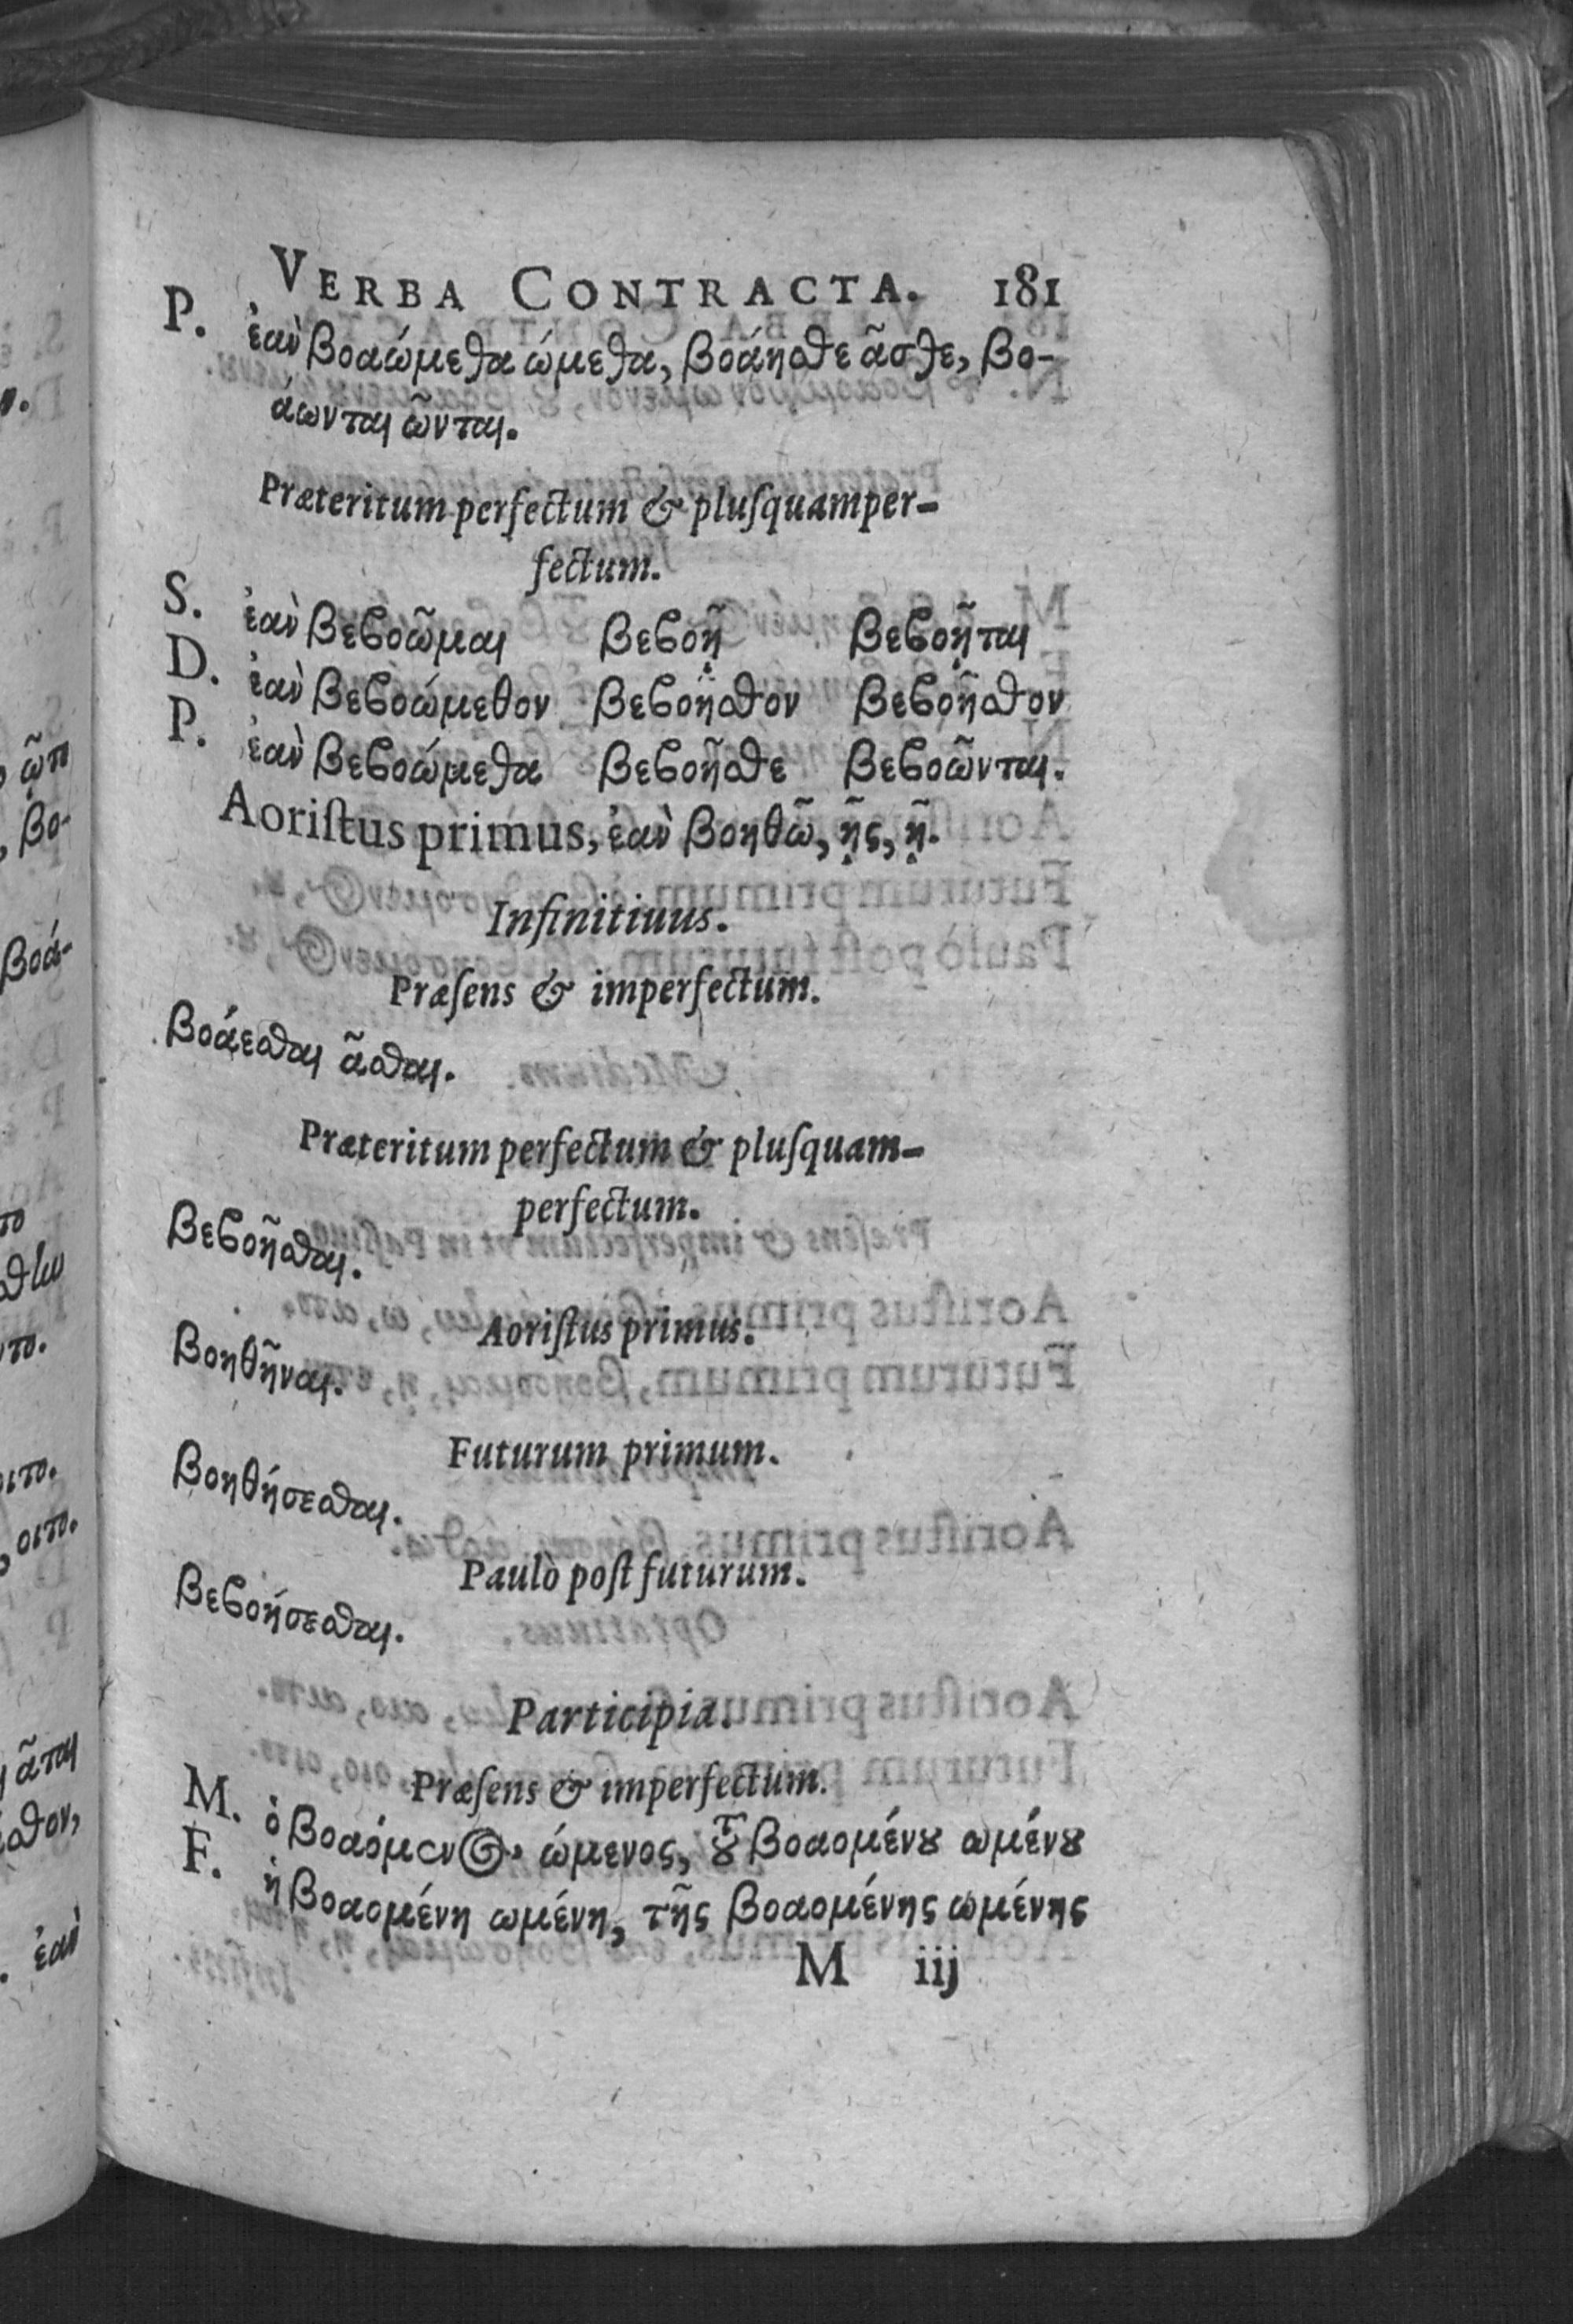 VERBA CONTRACTA. 181
P. ἐὰν βοαώμεθα ώμεθα, βοάησθε ᾶσθε, βο-
άωνται ῶνται.
Præteritum perfectum & pluſquamper-
fectum.
S. ἐὰν βεβοῶμαι βεβοῇ βεβοῇται
D. ἐὰν βεβοώμεθον βεβοῆσθον βεβοῆσθον
P. ἐὰν βεβοώμεθα βεβοῆσθε βεβοῶνται.
Aoriſtus primus, ἐὰν βοηθῶ, ῇς, ῇ.
Infinitiuus.
Præſens & imperfectum.
βοάεσθαι ᾶσθαι.
Præteritum perfectum & pluſquam-
perfectum.
βεβοῆσθαι.
Aoriſtus primus.
βοηθῆναι.
Futurum primum.
βοηθήσεσθαι.
Paulò poſt futurum.
βεβοήσεσθαι.
Participia.
Præſens & imperfectum.
M. ὁ βοαόμενος ώμενος, τȣ͂ βοαομένȣ ωμένȣ
F. ἡ βοαομένη ωμένη, τῆς βοαομένης ωμένης
M iij